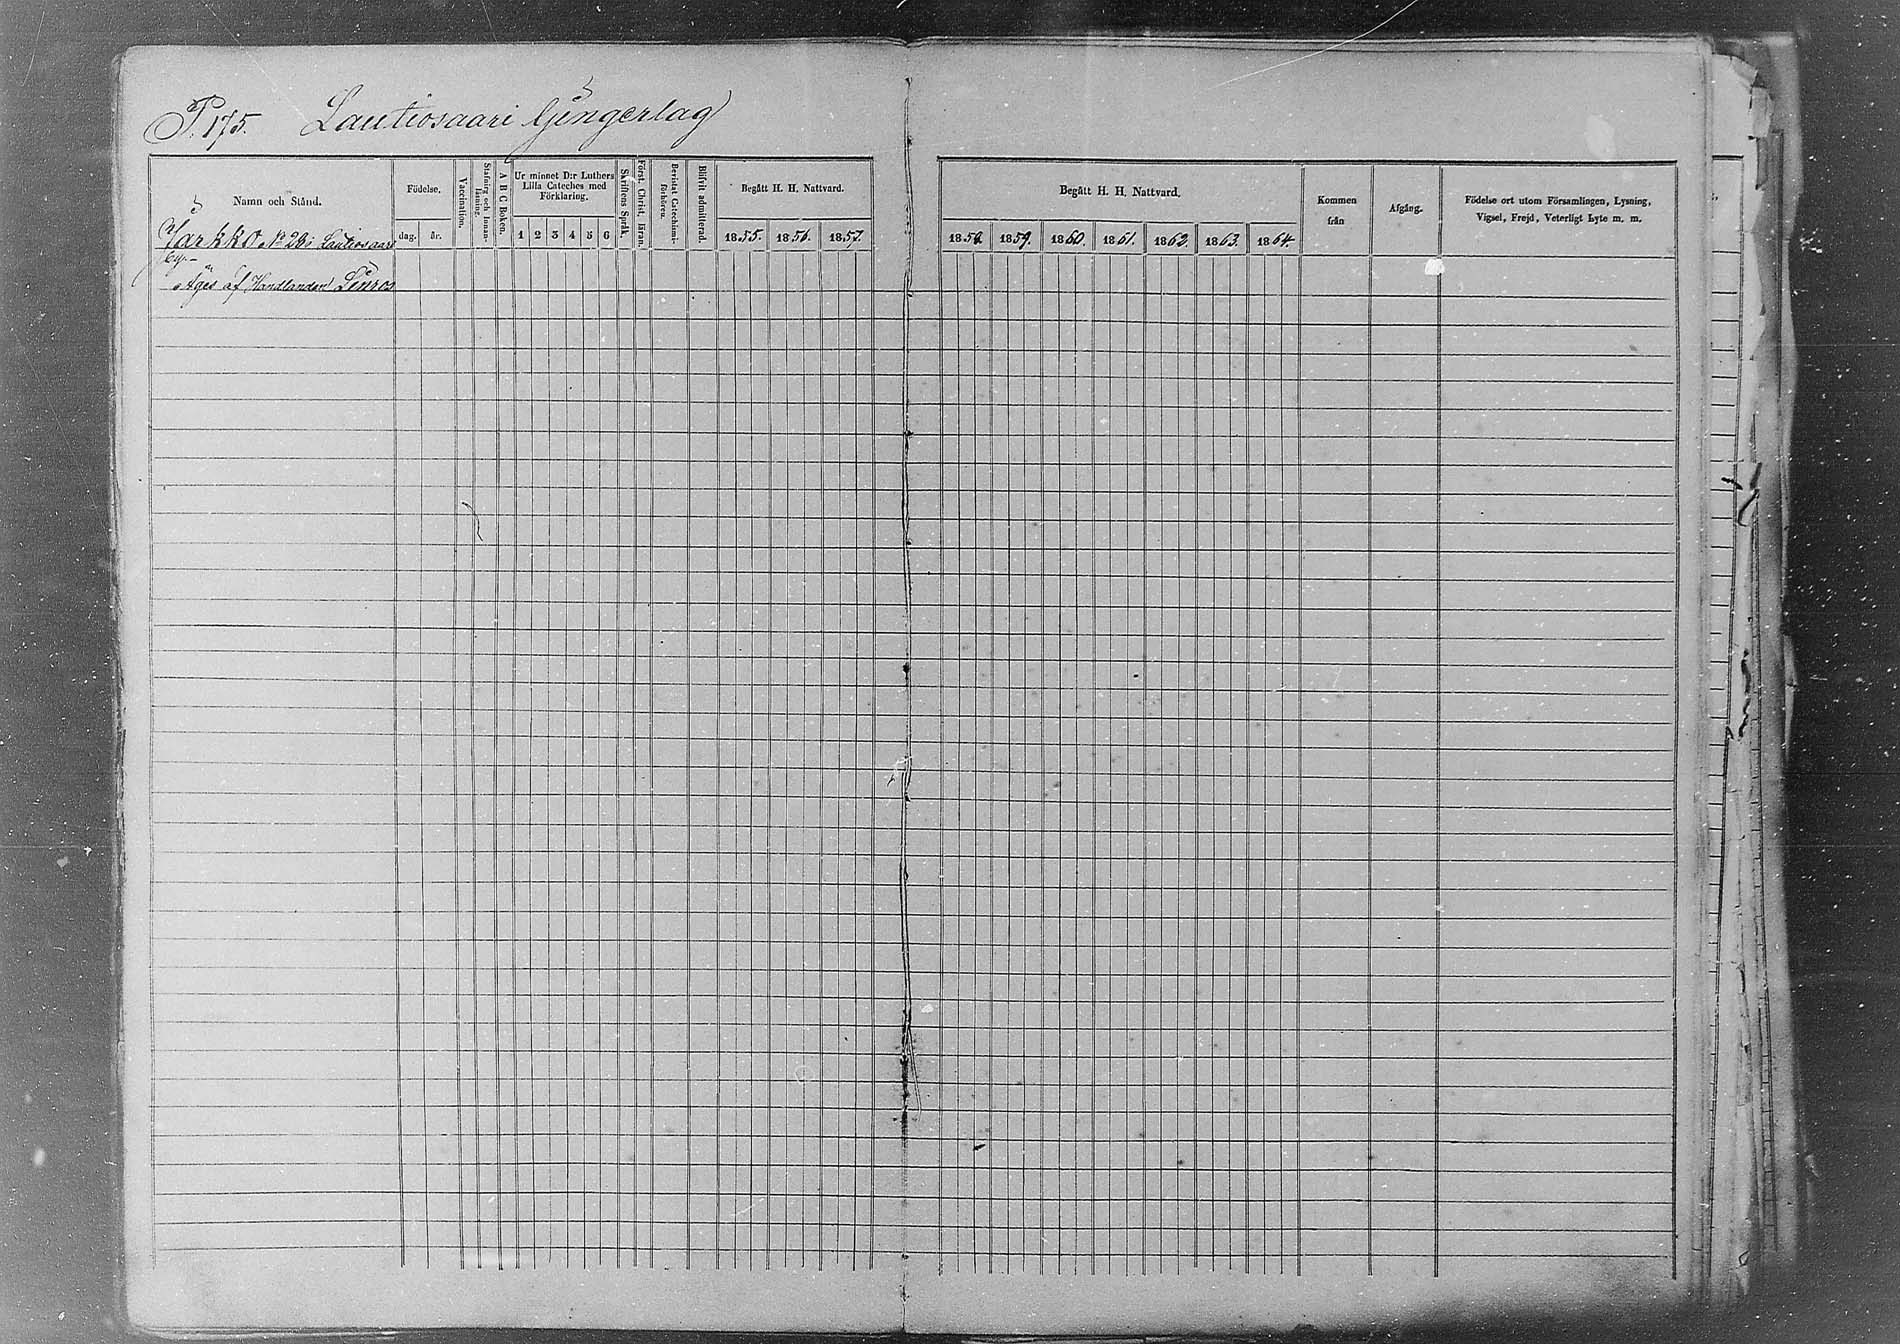 P. 175. Lautiosaari Gengerlag
Namn och Stånd.
Födelse.
dag. år.
Vaccination.
Stafning och Innanläsning.
A B C Boken.
Ur minnet D:r Luthers
Lilla Cateches med
Förklaring.
1 2 3 4 5 6
Skriftens Språk.
Först. Christ. läran.
Bevistat Catechismiförhören.
Blifvit admitterad.
Begått H. H. Nattvard.
1855. 1856. 1857.
Begått H. H. Nattvard.
1858. 1859. 1860. 1861. 1862. 1863. 1864.
Kommen
från
Afgång.
Födelse ort utom Församlingen, Lysning,
Vigsel, Frejd, Veterligt Lyte m. m.
Jarkko No 28 i Lautiosaari
By
Äges af Handlanden